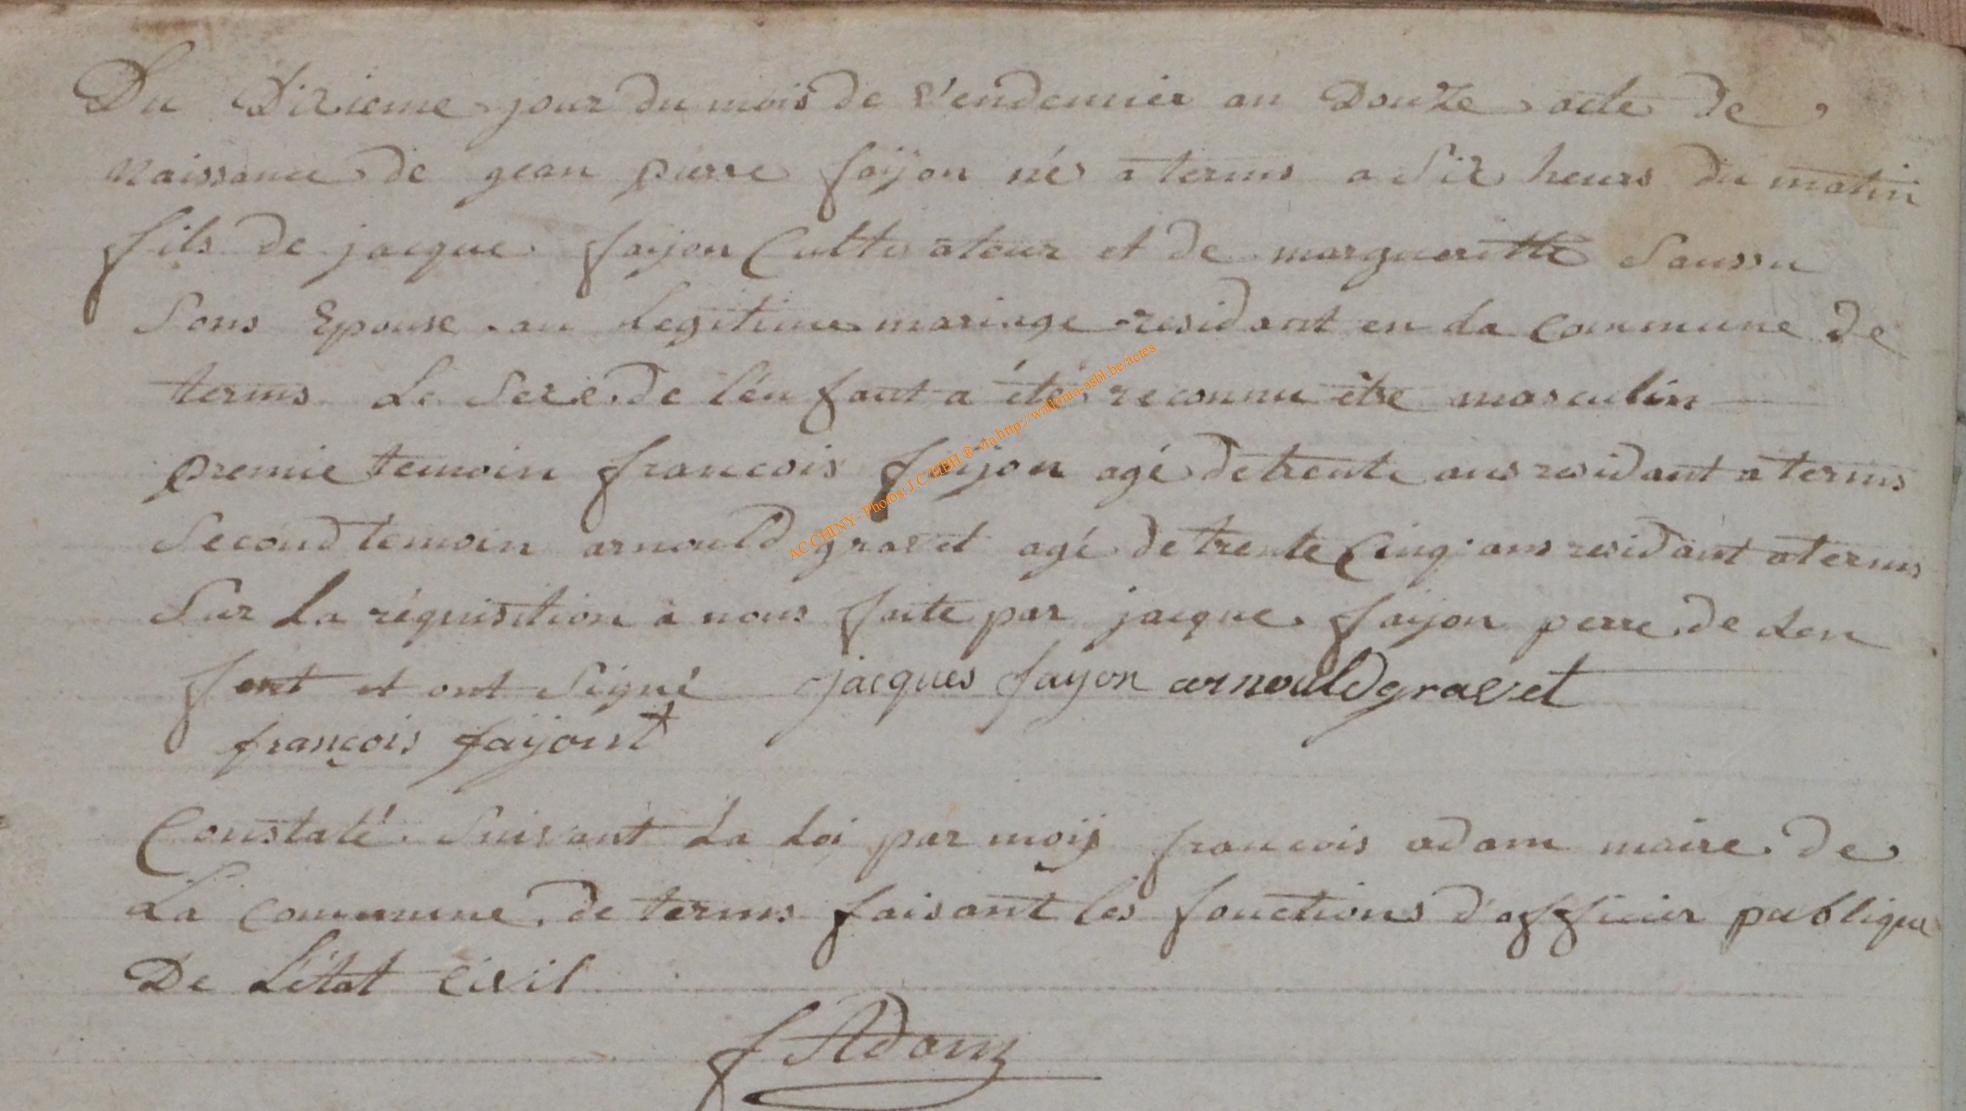 Du Dixieme jour du mois de Vendemier an Douze acte de
naissance de gean pierre fayon né a terms a Six heurs du matin
fils de jacque fayon Cultivateur et de margueritte Saussu
Sons Epouse au Legitime mariage residant en La commune de
terms Le Sexe de l'enfant a été reconnu être masculin
premie temoin francois faijon agé de trente ans residant a terms
Second temoin arnould gravet agé de trente Cinq ans residant a terms
Sur La réquisition a nous faite par jacque fayon perre de Len
fent et ont Signé jacques fayon arnould gravet
françois faijont
Constaté Suivant La Loi par moij francois adam maire de
La commune de terms faisant les fonctions d'officier publique
De L'état Civil
f Adam
ACCHINY - Photos J.C. HBH ® - via http://wallonia-asbl.be/actes